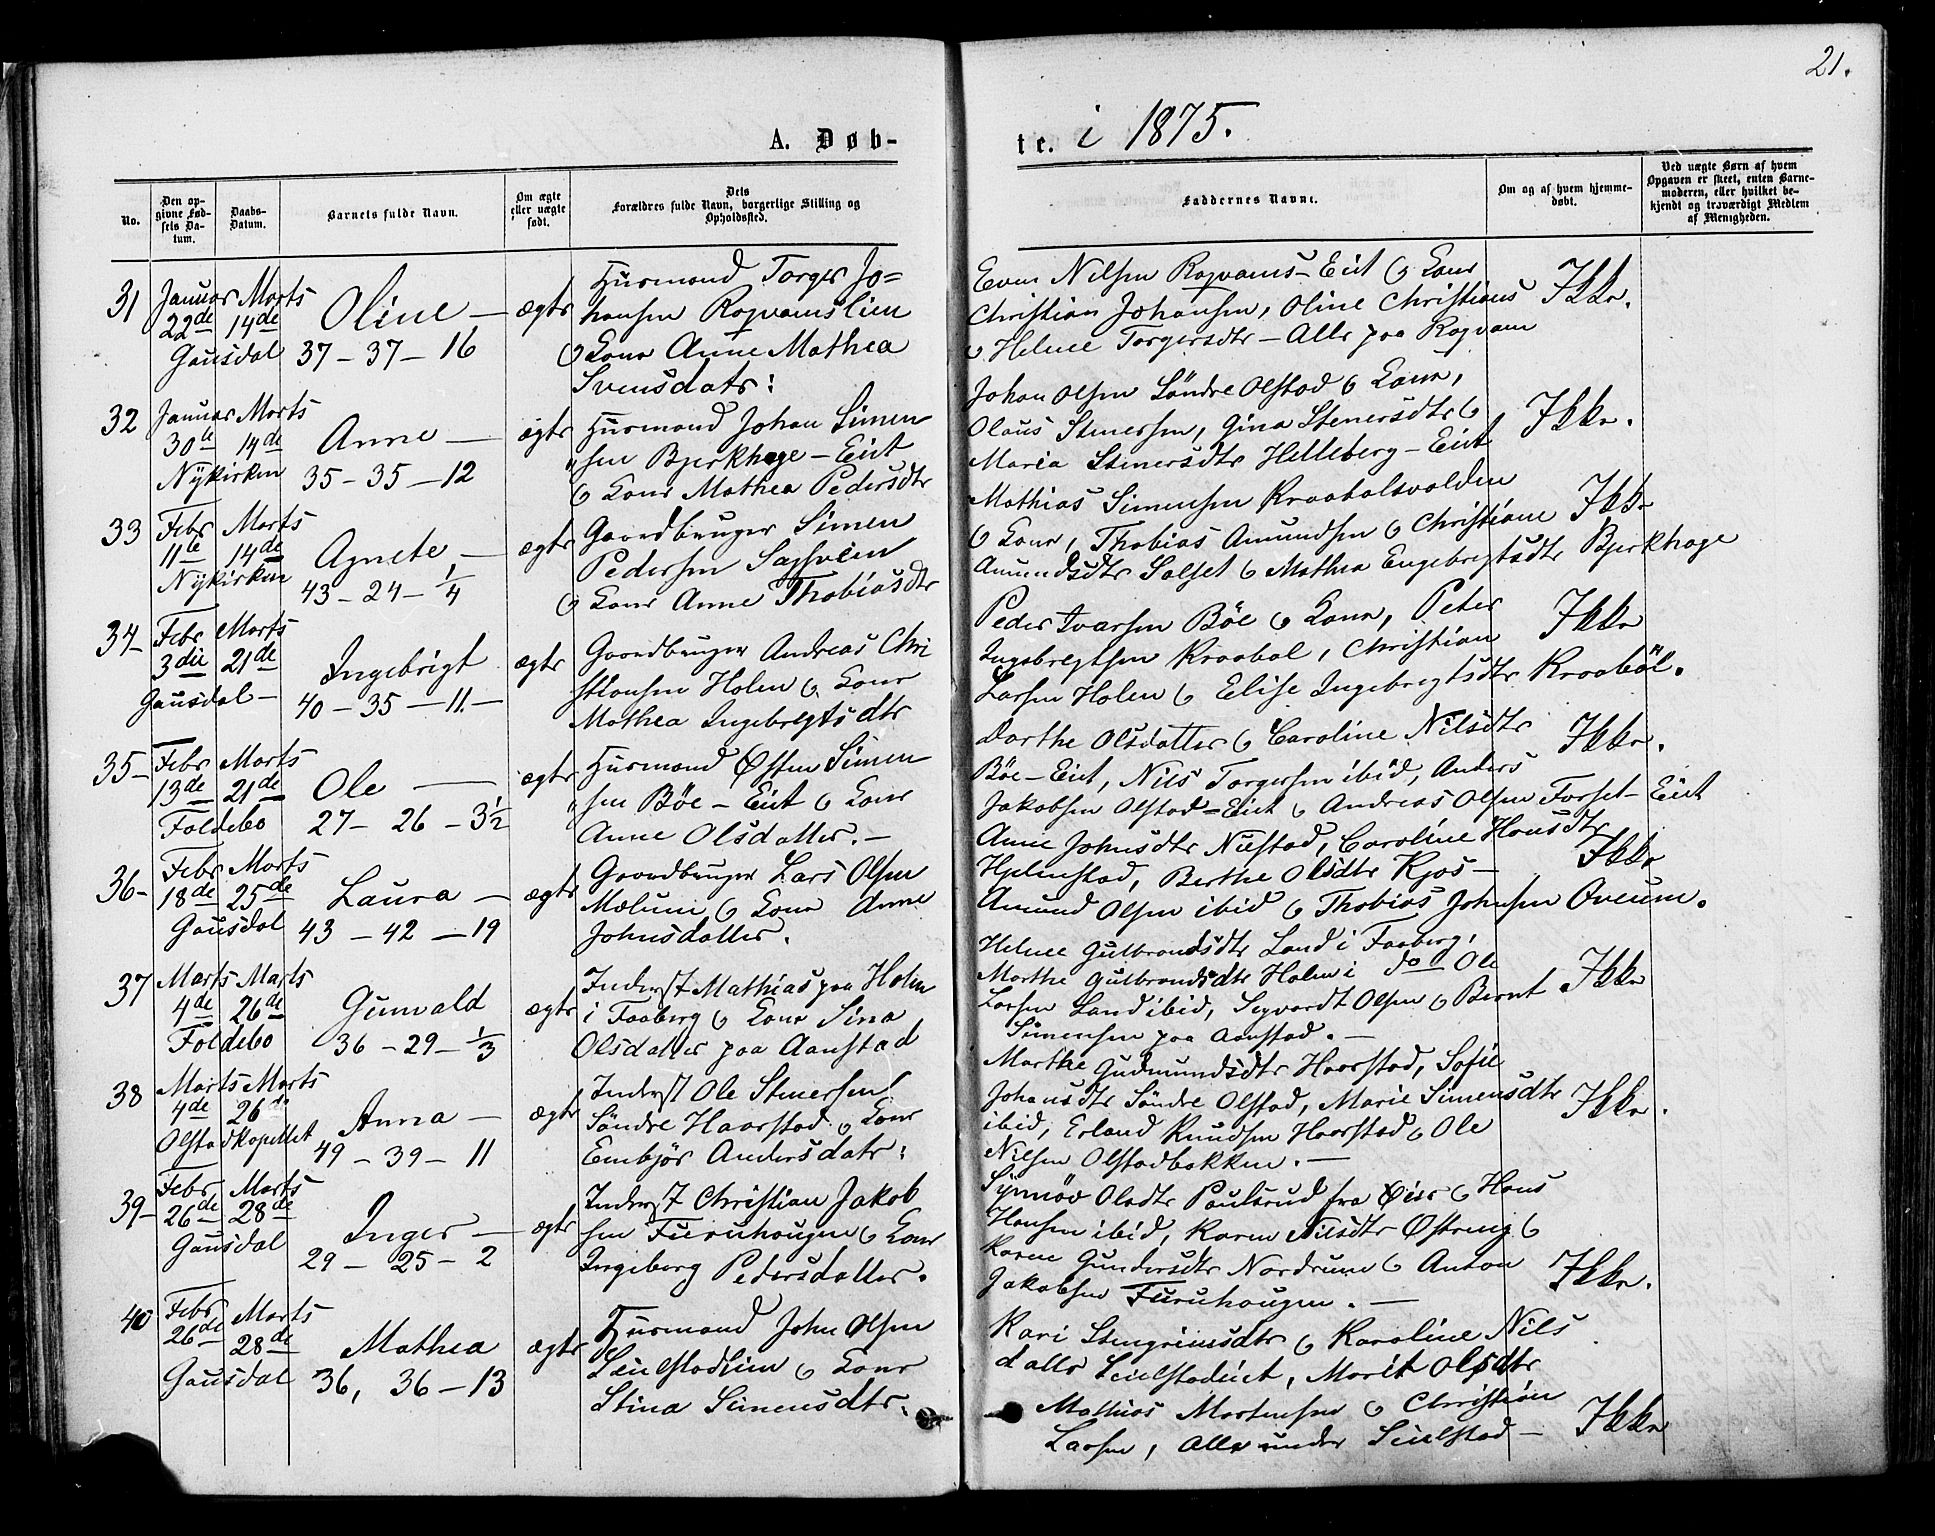 21.
A. Døb-
te. i 1875.
No.
Den op-
givne Fød-
sels Da-
tum.
Daabs-
Datum.
Barnets fulde Navn.
Om ægte
eller uægte
født.
Dets
Forældres fulde Navn, borgerlige Stilling og
Opholdssted.
Faddernes Navne.
Om og af hvem hjemme-
døbt.
Ved uægte Børn af hvem
Opgaven er skeet, enten Barne-
moderen, eller hvilket be-
kjendt og troværdigt Medlem
af Menigheden.
31 Januar Marts
22de 14de Oline — ægte
Gausdal 37 – 37 – 16
Husmand Torger Jo=
hansen Rogvamslien
& Kone Anne Mathea
Svensdatr:
Even Nilsen Rogvams-Eiet & Kone
Christian Johansen, Oline Christians
& Helene Torgersdtr – Alle paa Rogvam
Ikke.
32 Januar Marts
30te 14de Anne — ægte
Nykirken 35 – 35 – 12
Husmand Johan Simen
„sen Bjerkhage – Eiet
& Kone Mathea Pedersdtr
Johan Olsen Søndre Olstad & Kone,
Olaus Stenersen, Gina Stenersdtr &
Maria Stenersdtr Helleberg – Eiet
Ikke.
33 Febr Marts
11te 14de Agnete — ægte
Nykirken 43 – 24 – 1/4
Gaardbruger Simen
Pedersen
& Kone Anne Thobiasdtr
Mathias Simensen Kraabølsvolden
& Kone, Thobias Amundsen & Christiane
Amundsdtr Solset & Mathea Engebregtsdtr Bjerkhage
Ikke
34 Febr Marts
3die 21de Ingebrigt ægte
Gausdal – 40 – 35 – 11 –
Gaardbruger Andreas Chri
stiansen Holen & Kone
Mathea Ingebregtsdtr
Peder Ivarsen Bøe & Kone, Peter
Ingebregtsen Kraabøl, Christian
Larsen Holen & Elise Ingebregtsdtr Kraabøl.
Ikke
35 – Febr Marts
13de 21de Ole — ægte
Foldebo 27 – 26 – 3 1/2
Husmand Østen Simen
„sen Bøe – Eiet & Kone
Anne Olsdatter. –
Dorthe Olsdatter & Caroline Nilsdtr
Bøe – Eiet, Nils Torgersen ibid, Anders
Jakobsen Olstad – Eiet & Andreas Olsen Forset – Eiet
Ikke.
36 – Febr Marts
18de 25de Laura — ægte
Gausdal 43 – 42 – 19
Gaardbruger Lars Olsen
Mælum & Kone Anne
Johnsdatter.
Anne Johnsdtr Nustad, Caroline Hansdtr
Hjelmstad, Berthe Olsdtr Kjos –
Amund Olsen ibid & Thobias Johnsen Oveum.
Ikke
37 Marts Marts
4de 26de Gunvald ægte
Foldebo 36 – 29 – 1/3
Inderst Mathias paa Holen
i Faaberg & Kone Sina
Olsdatter paa Aanstad
Helene Gulbrandsdtr Land i Faaberg,
Marthe Gulbrandsdtr Holen i do & Ole
Larsen Land ibid, Segvardt Olsen & Bernt
Simensen paa Aanstad. –
Ikke
38 Marts Marts
4de 26de Anna — ægte
Olstadkapellet 49 – 39 – 11
Inderst Ole Stenersen
Søndre Haarstad & Kone
Embjør Andersdatr:
Marthe Gudmundsdtr Haarstad, Sofie
Johansdtr Søndre Olstad, Marie Simensdtr
ibid, Erland Knudsen Haarstad & Ole
Nilsen Olstadbakken. –
Ikke.
39 – Febr Marts
26de 28de Inger — ægte
Gausdal 29 – 25 – 2
Inderst Christian Jakob
sen Furuhaugen & Kone
Ingeborg Pedersdatter.
Synnøv Olsdtr Paulsrud fra Øier & Hans
Hansen ibid, Karen Nilsdtr Østreng &
Karen Gundersdtr Nordrum & Anton
Jakobsen Furuhaugen. –
Ikke.
40 Febr Marts
26de 28de Mathea ægte
Gausdal 36, 36 – 13
Husmand John Olsen
Seielstadlien & Kone
Stina Simensdtr.
Kari Stengrimsdtr & Karoline Nils
datter Seielstadeiet, Marit Olsdtr
Mathias Martinsen & Christian
Larsen, Alle under Seielstad –
Ikke